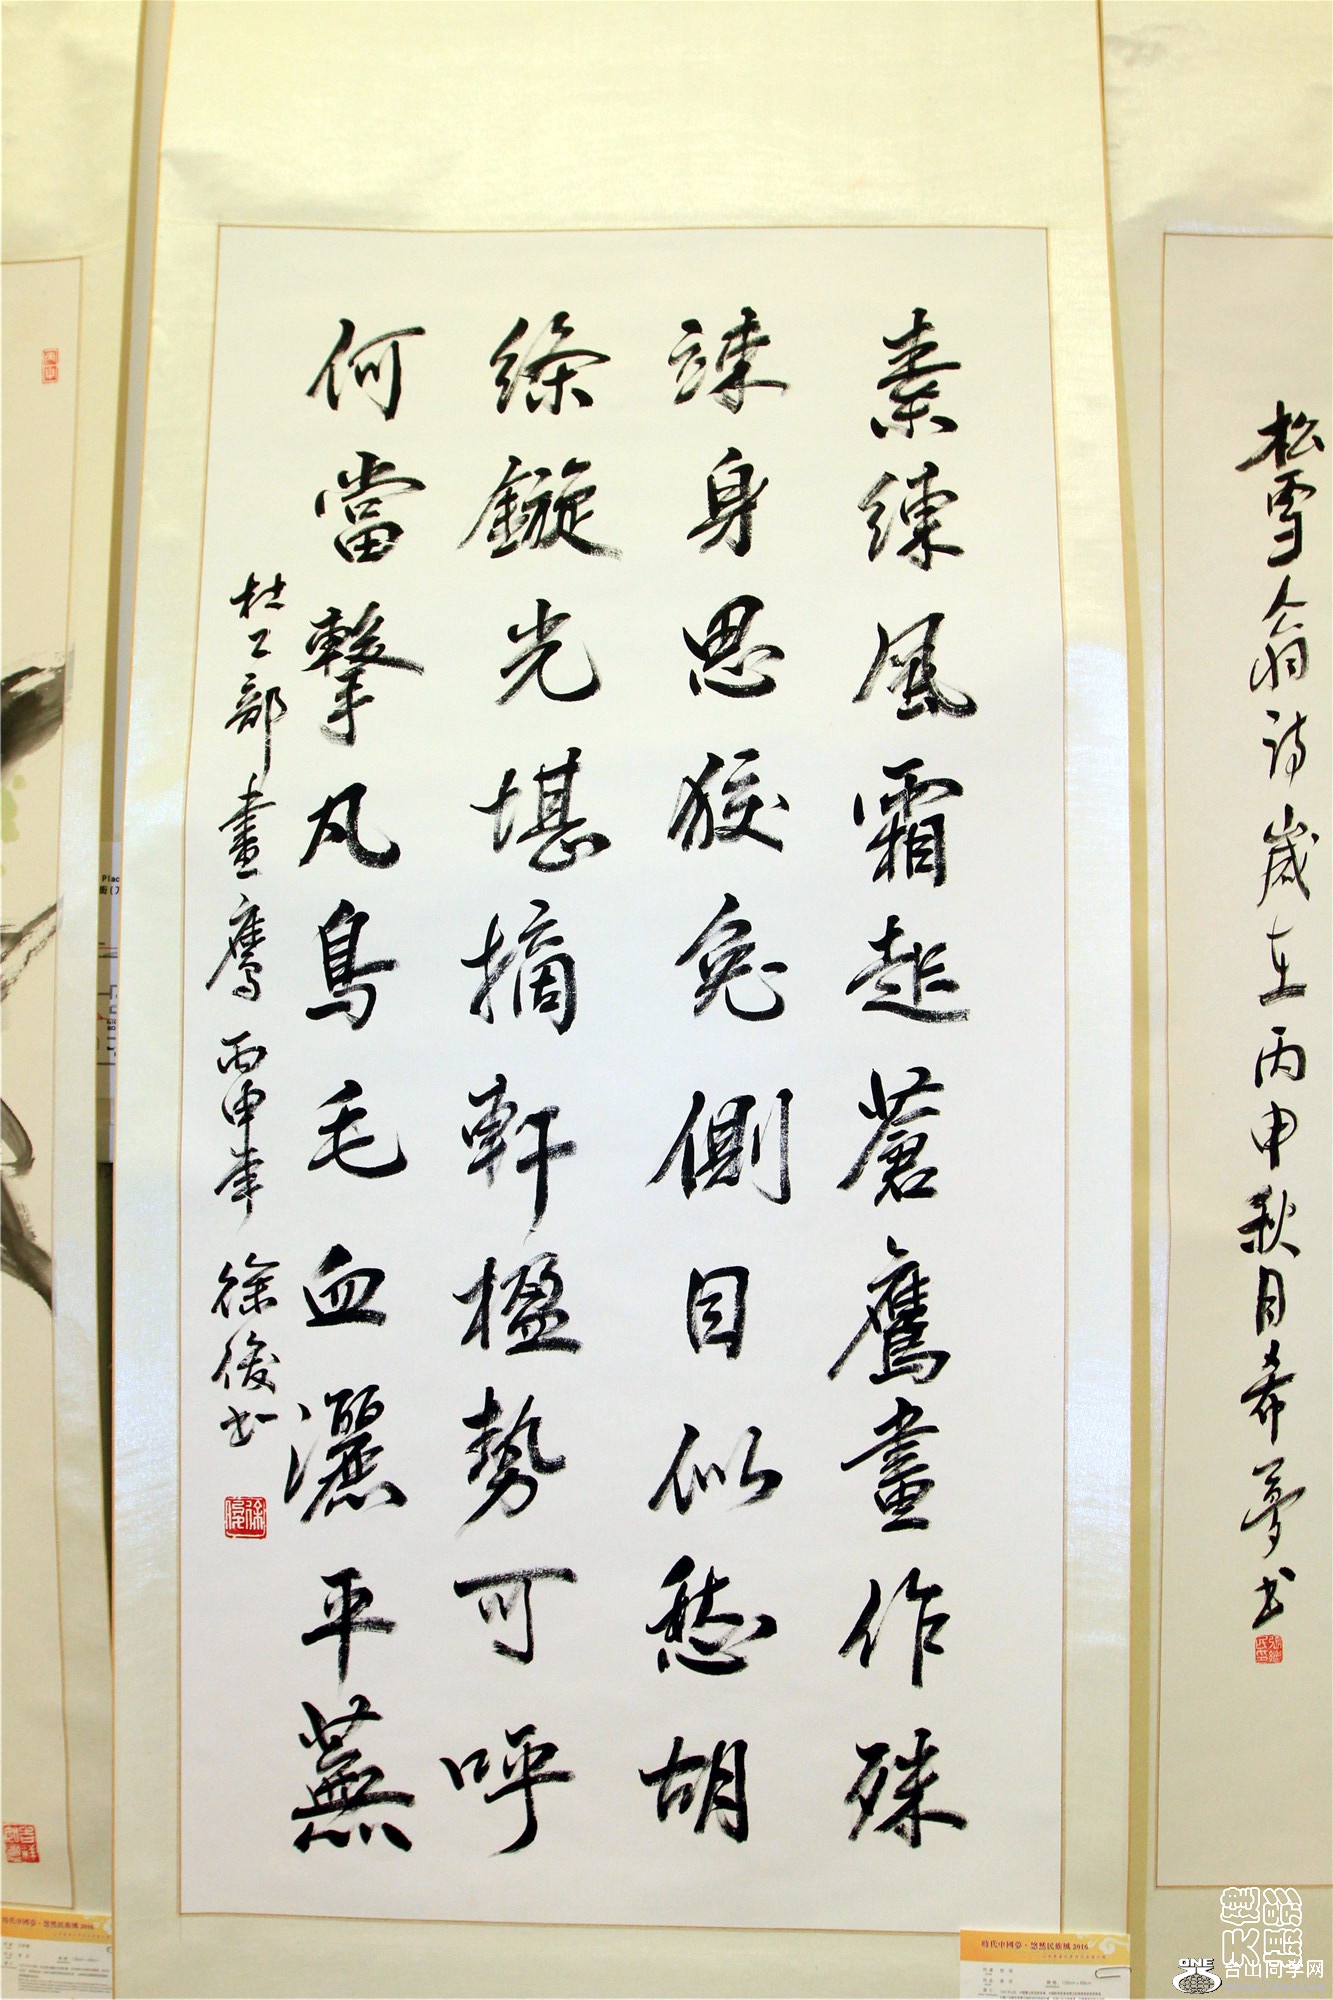 素練風霜起蒼鷹畫作殊
竦身思狡兔側目似愁胡
絛鏇光堪摘軒楹勢可呼
何當擊凡鳥毛血灑平蕪
杜工部畫鷹 丙申年 徐俊书
徐俊
松雪翁诗歲在丙申秋月希夢书
時代中國夢·悠然民族風 2016
時代中國夢·悠然民族風 2016
ONE
台山同学网